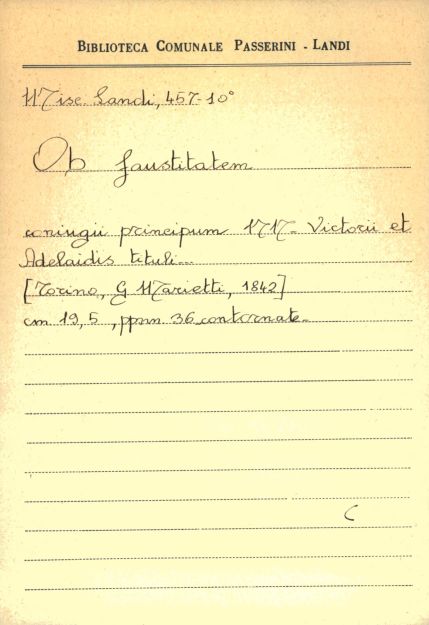 BIBLIOTECA COMUNALE PASSERINI - LANDI
Misc. Landi, 457-10°
Ob faustitatem
coniugii principum MM- Victorii et
Adelaidis tituli...
[Torino, G Marietti, 1842]
cm 19,5, ppnn 36 contornate-
C